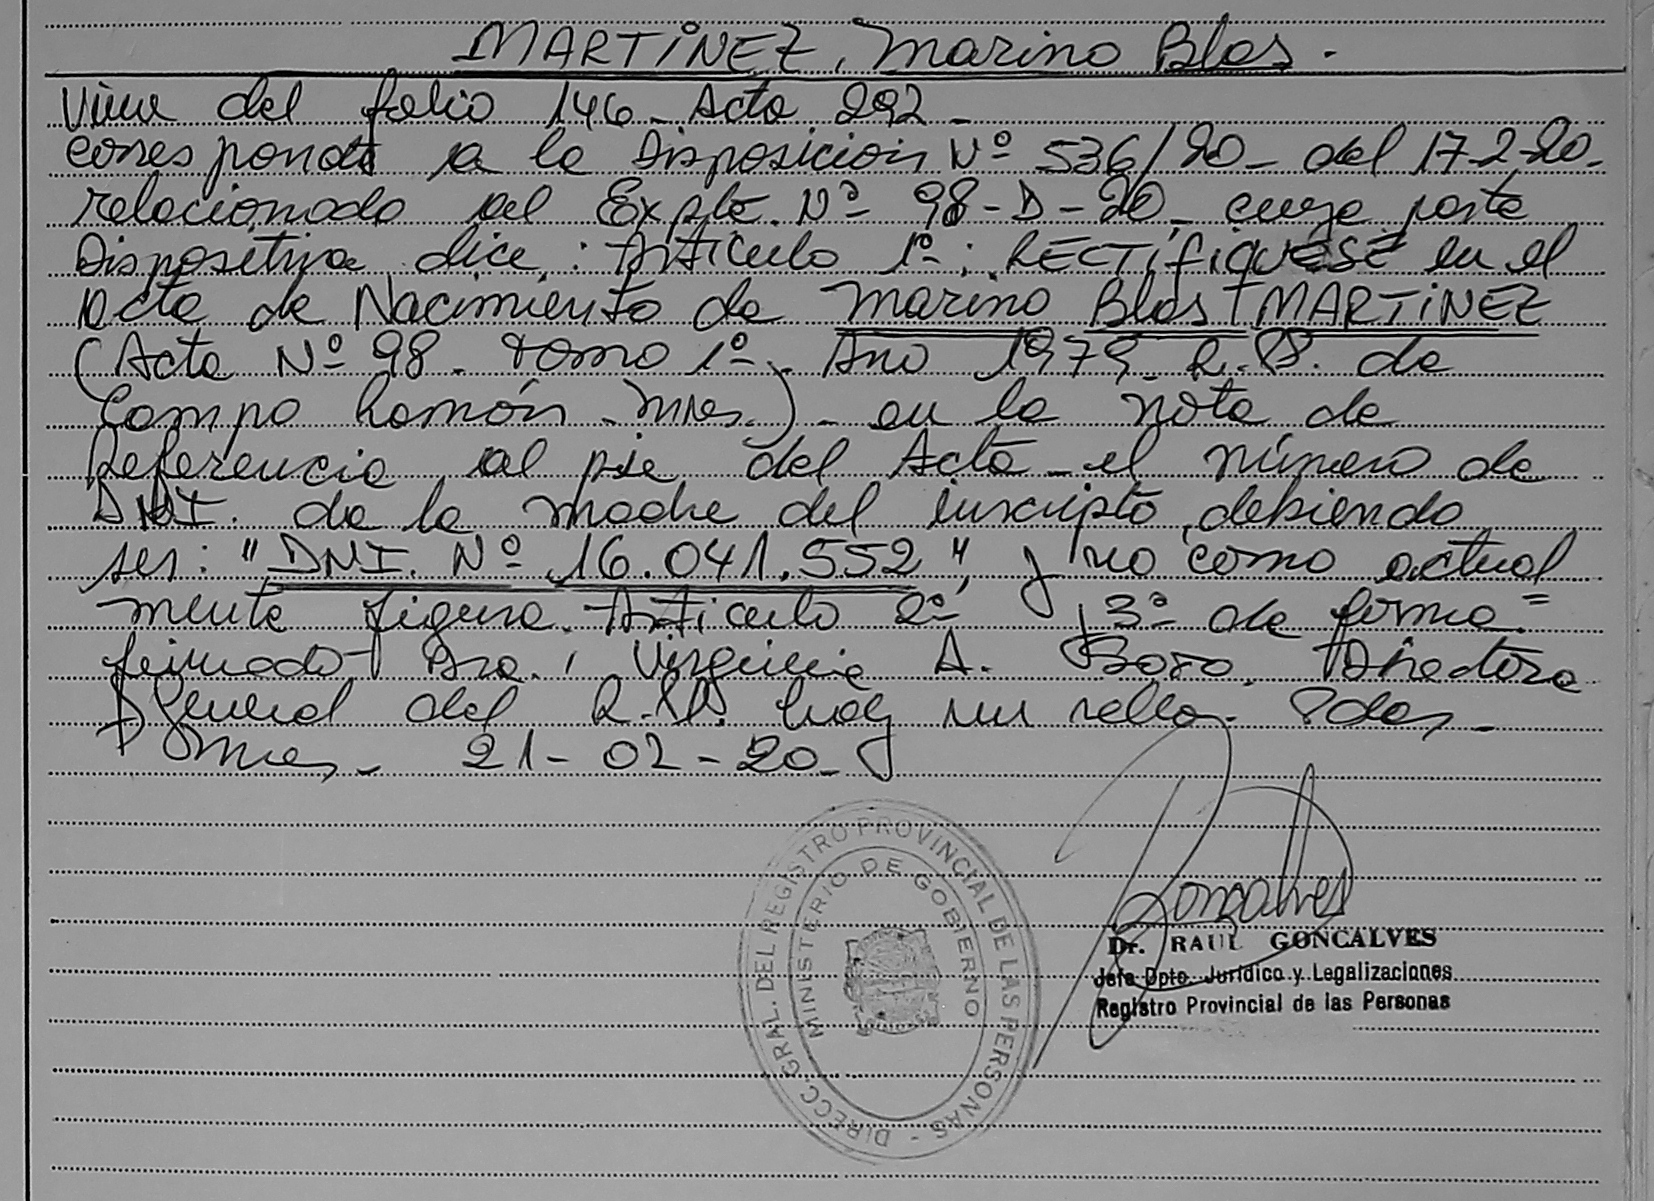 MARTINEZ, Marino Blas.
Viene del folio 146 - Acta 292 -
corresponde a la Disposicion Nº 536/20 - del 17-2-20.
relacionado al Expte. Nº 98-D-20 - cuya parte
Dispositiva dice: Articulo 1º: RECTIFIQUESE en el
acta de Nacimiento de Marino Blas MARTINEZ
(Acta Nº 98. tomo 1º. Año 1979. R.P. de
Campo Ramón - Mnes.) - en la nota de
Referencia al pie del Acta - el número de
DNI. de la madre del inscripto, debiendo
ser: "DNI. Nº 16.041.552", y no como actual
mente figura. Articulo 2º y 3º de forma =
firmado Dra. Virginia A. Boro. Directora
General del R.P. hay un sello. Pdas -
Mnes - 21-02-20.
DIRECC. GRAL. DEL REGISTRO PROVINCIAL DE LAS PERSONAS -
MINISTERIO DE GOBIERNO
Goncalves
Dr. RAUL GONCALVES
Jefe Dpto. Jurídico y Legalizaciones
Registro Provincial de las Personas